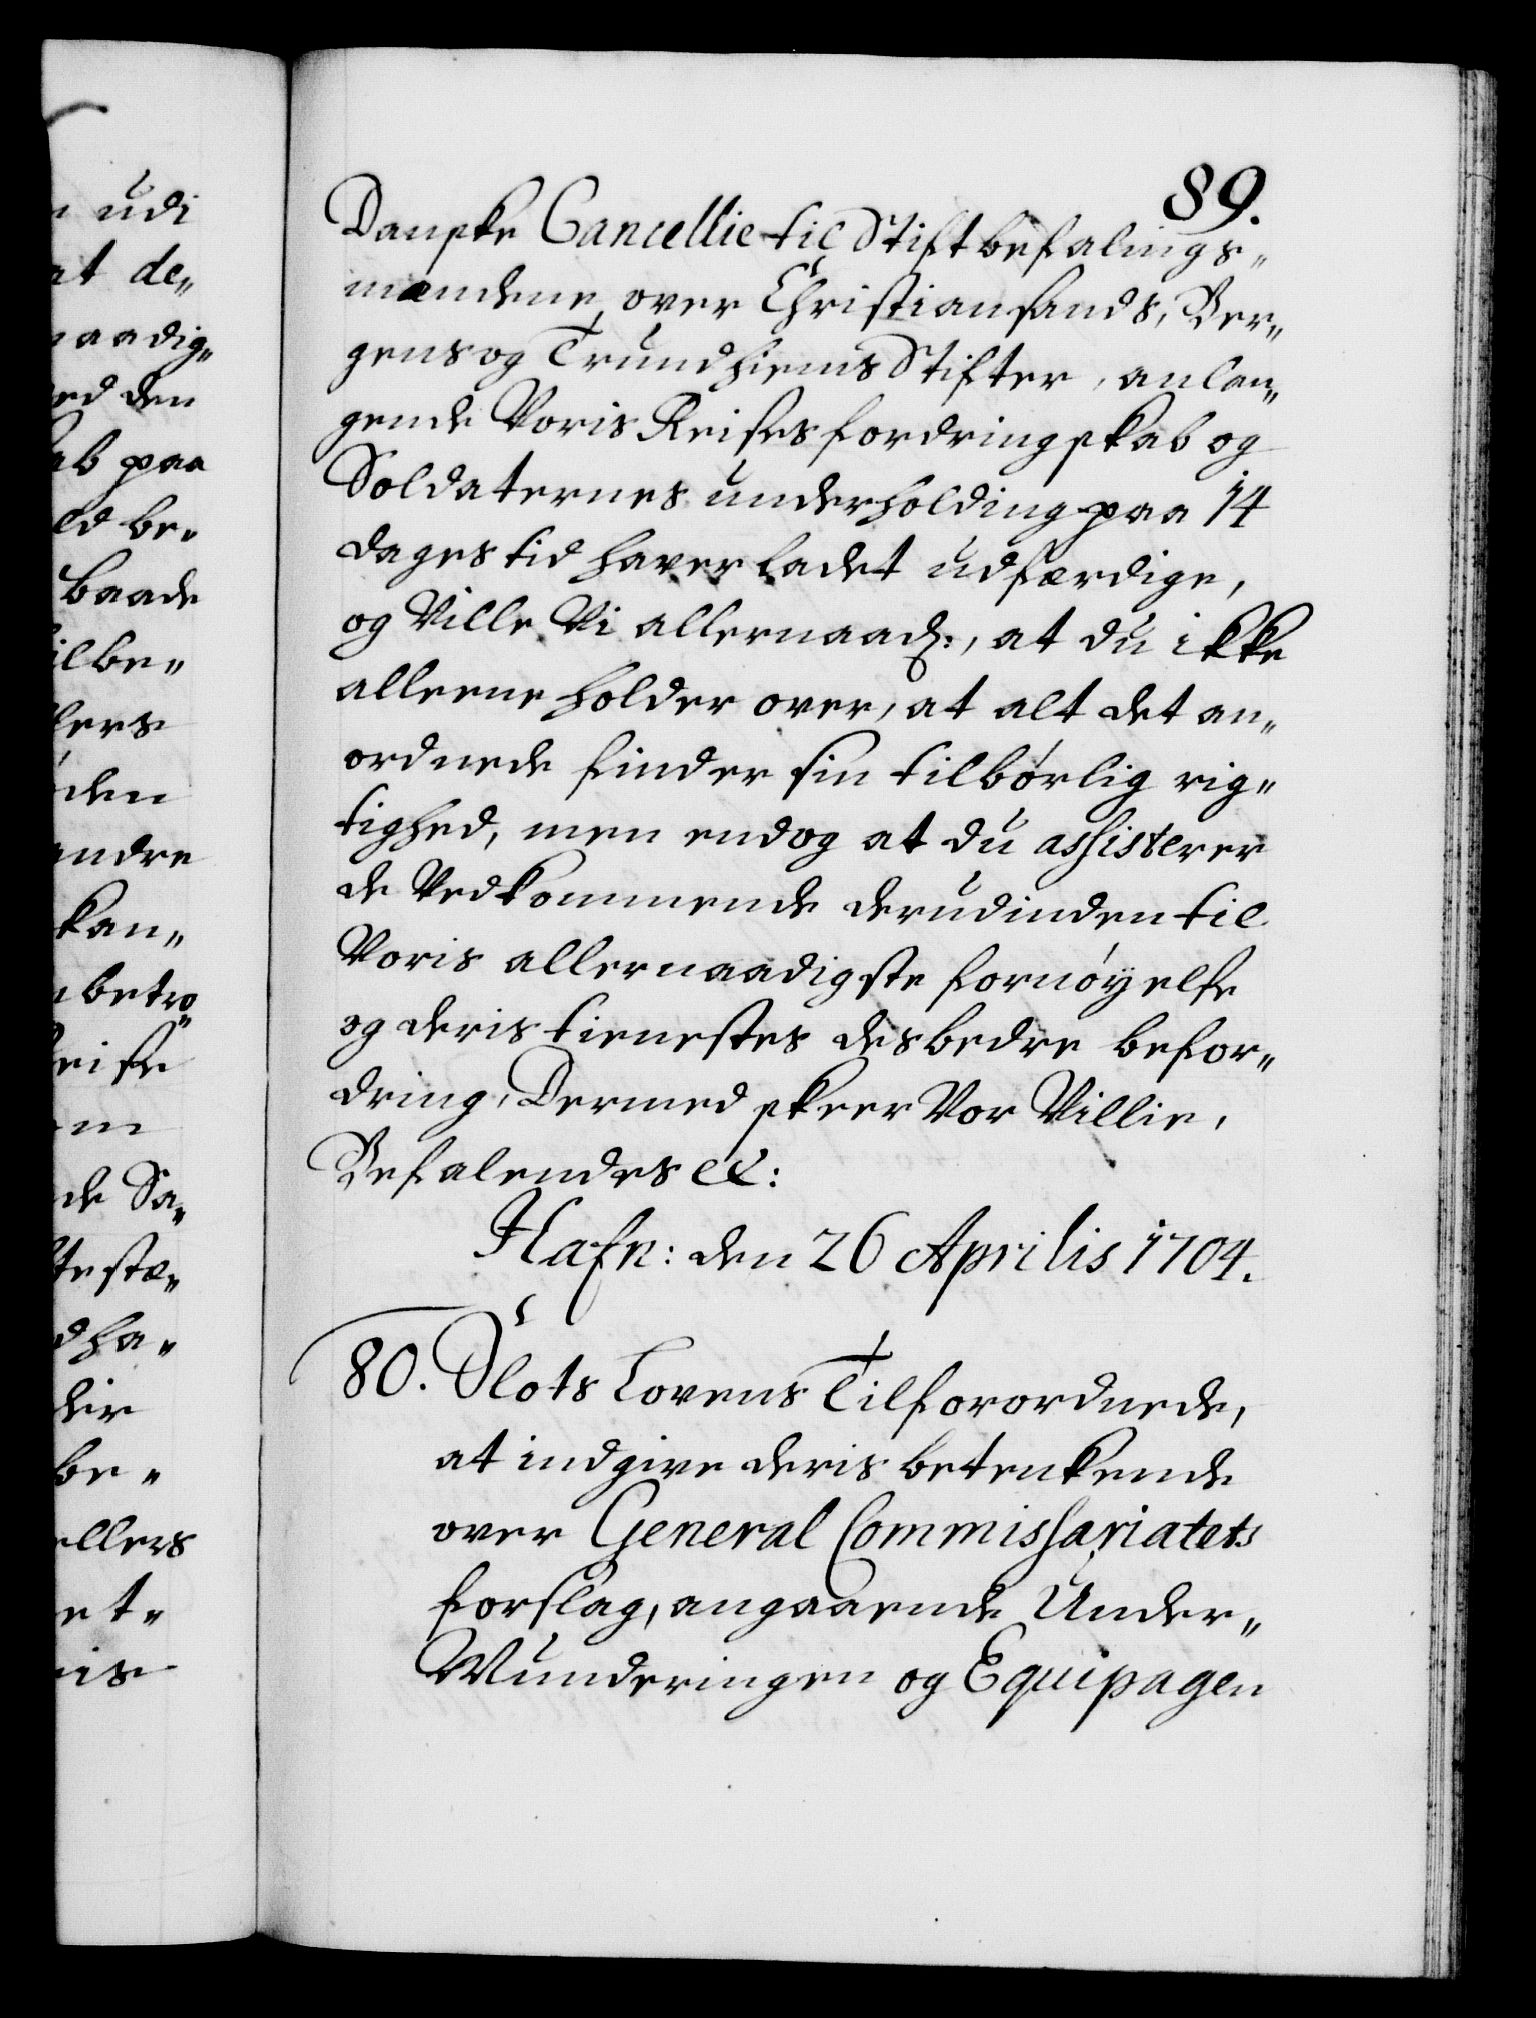 89.
Danske Cancellie til Stiftbefalings„
mændene over Christiansands, Ber„
gens og Trundhiems Stifter, anlan„
gende Voris Reises fordringskab og
Soldaternes underholding paa 14
dages tid haver ladet udfærdige,
og Ville Vi allernaad:, at du ikke
alleene holder over, at alt det an„
ordnede finder sin tilbørlig rig„
tighed, men endog at du assisterer
de Vedkommende derudinden til
Voris allernaadigste fornøyelse
og deris tienestes desbedre befor„
dring, Dermed skeer Vor Villie,
Befalendes etc:
Hafn: den 26 Aprilis 1704.
80. Slots Lovens Tilforordnede,
at indgive deris betenkende
over General Commissariatets
forslag, angaaende Under„
Munderingen og Equipagen
udi
at de„
naadig„
ed den
ab paa
ld be„
baade
ilbe„
lers
den
andre
kan„
betro„
eise
de Sa„
te stæ„
d ha„
dir
be„
ellers
et„